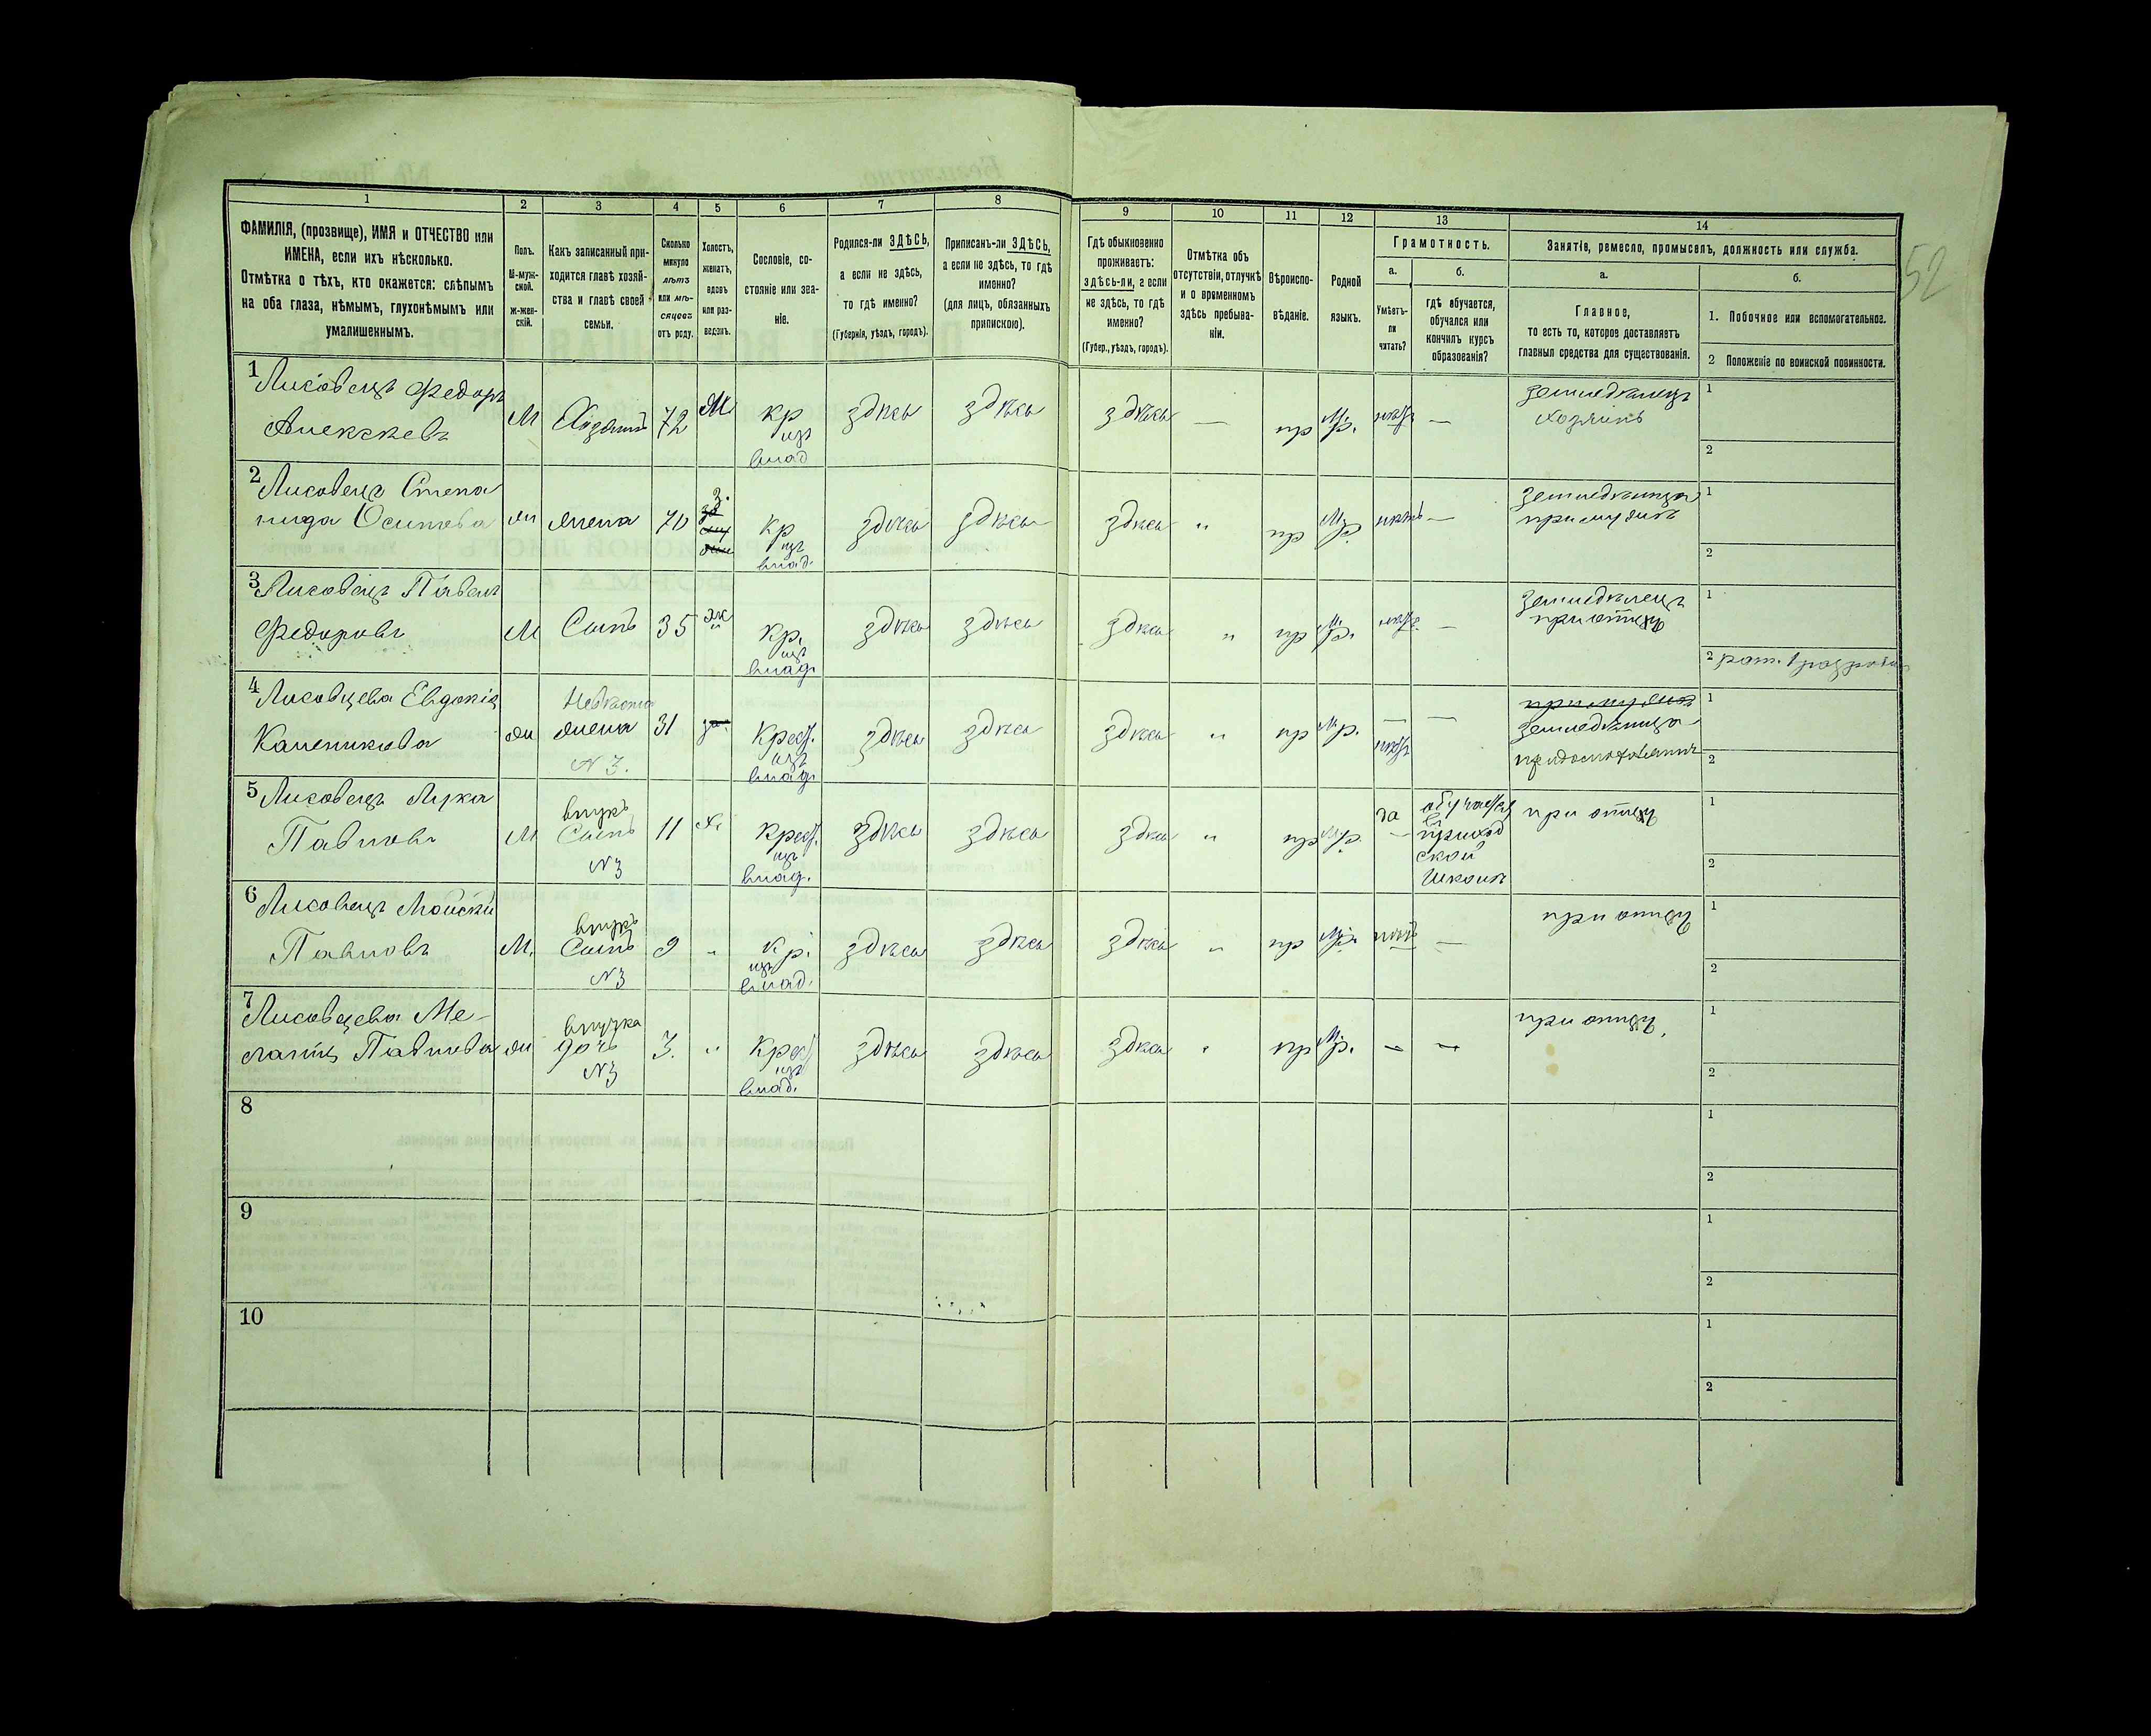 52
1 2 3 4 5 6 7 8 9 10 11 12 13 14
ФАМИЛІЯ, (прозвище), ИМЯ и ОТЧЕСТВО или
ИМЕНА, если ихъ нѣсколько.
Отмѣтка о тѣхъ, кто окажется: слѣпымъ
на оба глаза, нѣмымъ, глухонѣмымъ или
умалишеннымъ.
Полъ.
М-муж-
ской.
Ж-жен-
скій.
Какъ записанный при-
ходится главѣ хозяй-
ства и главѣ своей
семьи.
Сколько
минуло
лѣтъ
или мѣ-
сяцевъ
отъ роду.
Холостъ,
женатъ,
вдовъ
или раз-
веденъ.
Сословіе, со-
стояніе или зва-
ніе.
Родился-ли ЗДѢСЬ,
а если не здѣсь,
то гдѣ именно?
(Губернія, уѣздъ, городъ).
Приписанъ-ли ЗДѢСЬ,
а если не здѣсь, то гдѣ
именно?
(для лицъ, обязанныхъ
припискою).
Гдѣ обыкновенно
проживаетъ:
здѣсь-ли, а если
не здѣсь, то гдѣ
именно?
(Губер., уѣздъ, городъ).
Отмѣтка объ
отсутствіи, отлучкѣ
и о временномъ
здѣсь пребыва-
ніи.
Вѣроиспо-
вѣданіе.
Родной
языкъ.
Грамотность.
а.
Умѣетъ-
ли
читать?
б.
гдѣ обучается,
обучался или
кончилъ курсъ
образованія?
Занятіе, ремесло, промыселъ, должность или служба.
а.
Главное,
то есть то, которое доставляетъ
главныя средства для существованія.
б.
1. Побочное или вспомогательное.
2 Положеніе по воинской повинности.
1 Лисовецъ Федоръ
Алексѣевъ
М Хозяинъ 72 Ж кр
изъ
влад
здѣсь здѣсь здѣсь — пр М.р. нѣтъ —
земледѣлецъ
хозяинъ
1
2
2 Лисовецъ Степа
нида Осипова
ж жена 70 з. кр
изъ
влад.
здѣсь здѣсь здѣсь " пр М.р. нѣтъ —
земледѣлица
при мужѣ
1
2
3 Лисовецъ Павелъ
Федоровъ
М Сынъ 35 ж кр.
изъ
влад.
здѣсь здѣсь здѣсь " пр М.р. нѣтъ —
земледѣлецъ
при отцѣ
1
2 рат. 1 разряда
4 Лисовцева Евдокія
ж Невѣстка
жена
N 3.
31 за. Крест.
изъ
влад.
здѣсь здѣсь здѣсь " пр М.р. —
нѣтъ
—
при мужѣ
земледѣлица
1
2
5 Лисовецъ Лука
Павловъ
М внукъ
Сынъ
N3
11 х. Крест.
изъ
влад.
здѣсь здѣсь здѣсь " пр М.р. да
обучается
въ
приход
ской
школѣ
при отцѣ
1
2
6 Лисовецъ Мойсѣй
Павловъ
М. внукъ
Сынъ
N3
9 " Кр.
изъ
влад.
здѣсь здѣсь здѣсь " пр М.р. нѣтъ —
при отцѣ
1
2
7 Лисовцева Ме-
ланія Павлова
ж внучка
дочь
N3
3. " Крест
изъ
влад.
здѣсь здѣсь здѣсь " пр М.р. — —
при отцѣ.
1
2
8
1
2
9
1
2
10
1
2